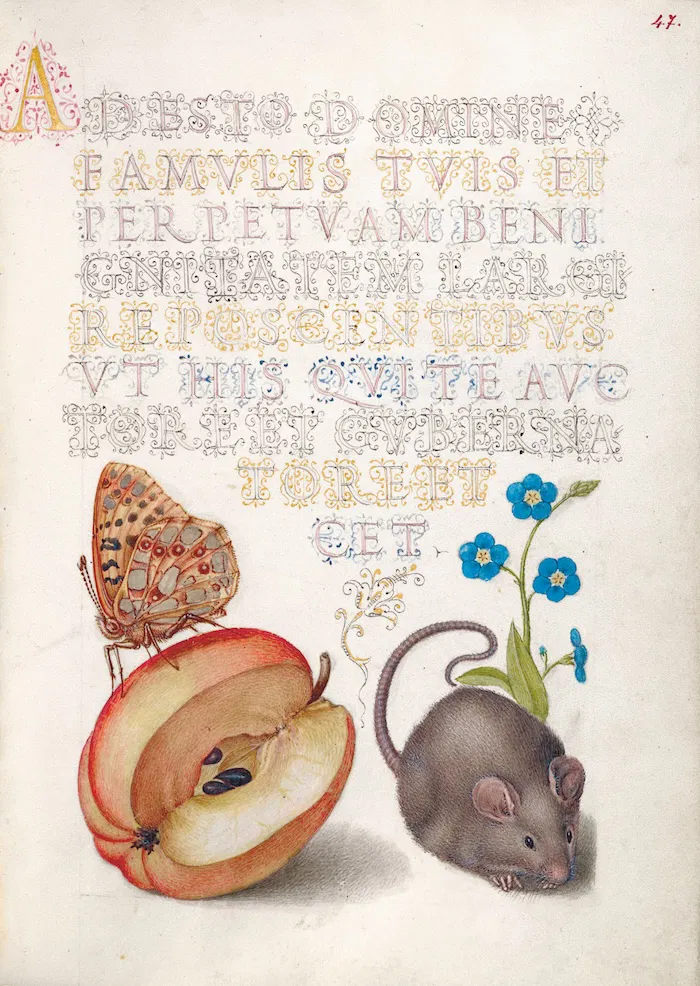 47.
ADESTO DOMINE
FAMVLIS TVIS ET
PERPETVAM BENI
GNITATEM LARGI
REPOSCENTIBVS
VT HIIS QVI TE AVC
TORE ET GVBERNA
TORE ET
CET